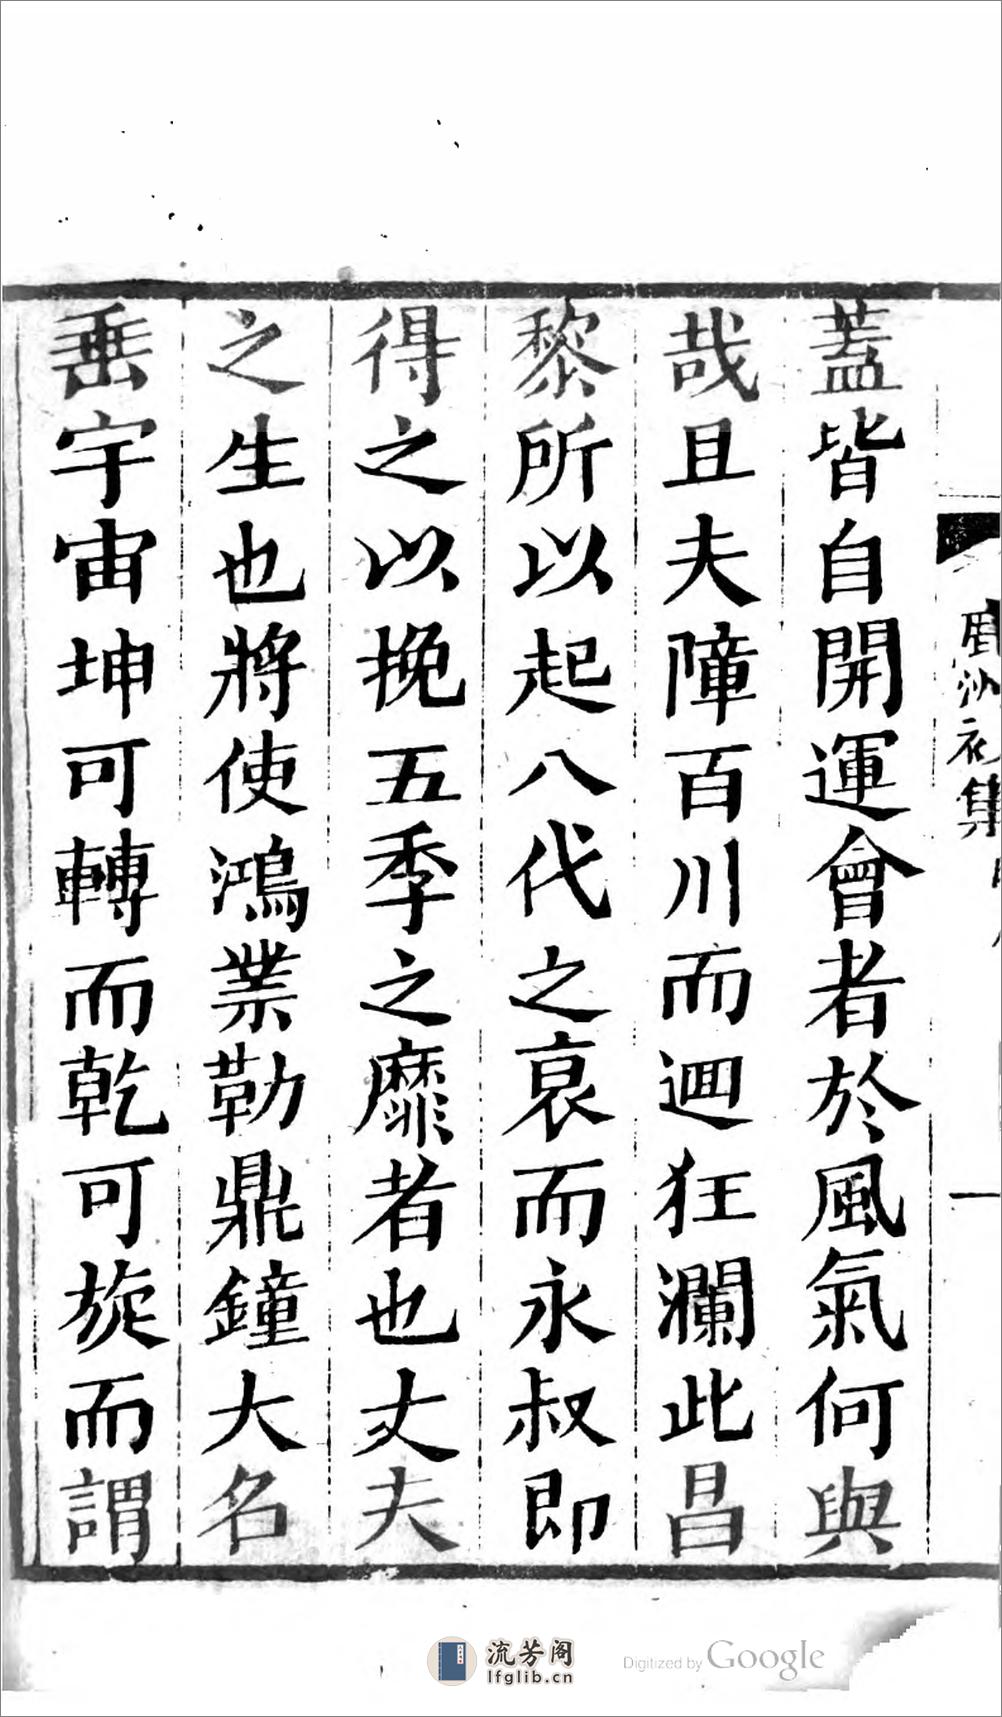 蓋皆自開運會者於風氣何與
哉且夫障百川而迴狂瀾此昌
黎所以起八代之衰而永叔即
得之以挽五季之靡者也丈夫
之生也將使鴻業勒鼎鐘大名
垂宇宙坤可轉而乾可旋而謂
沙初集
一
流芳阁
lfglib.cn
Digitized by Google